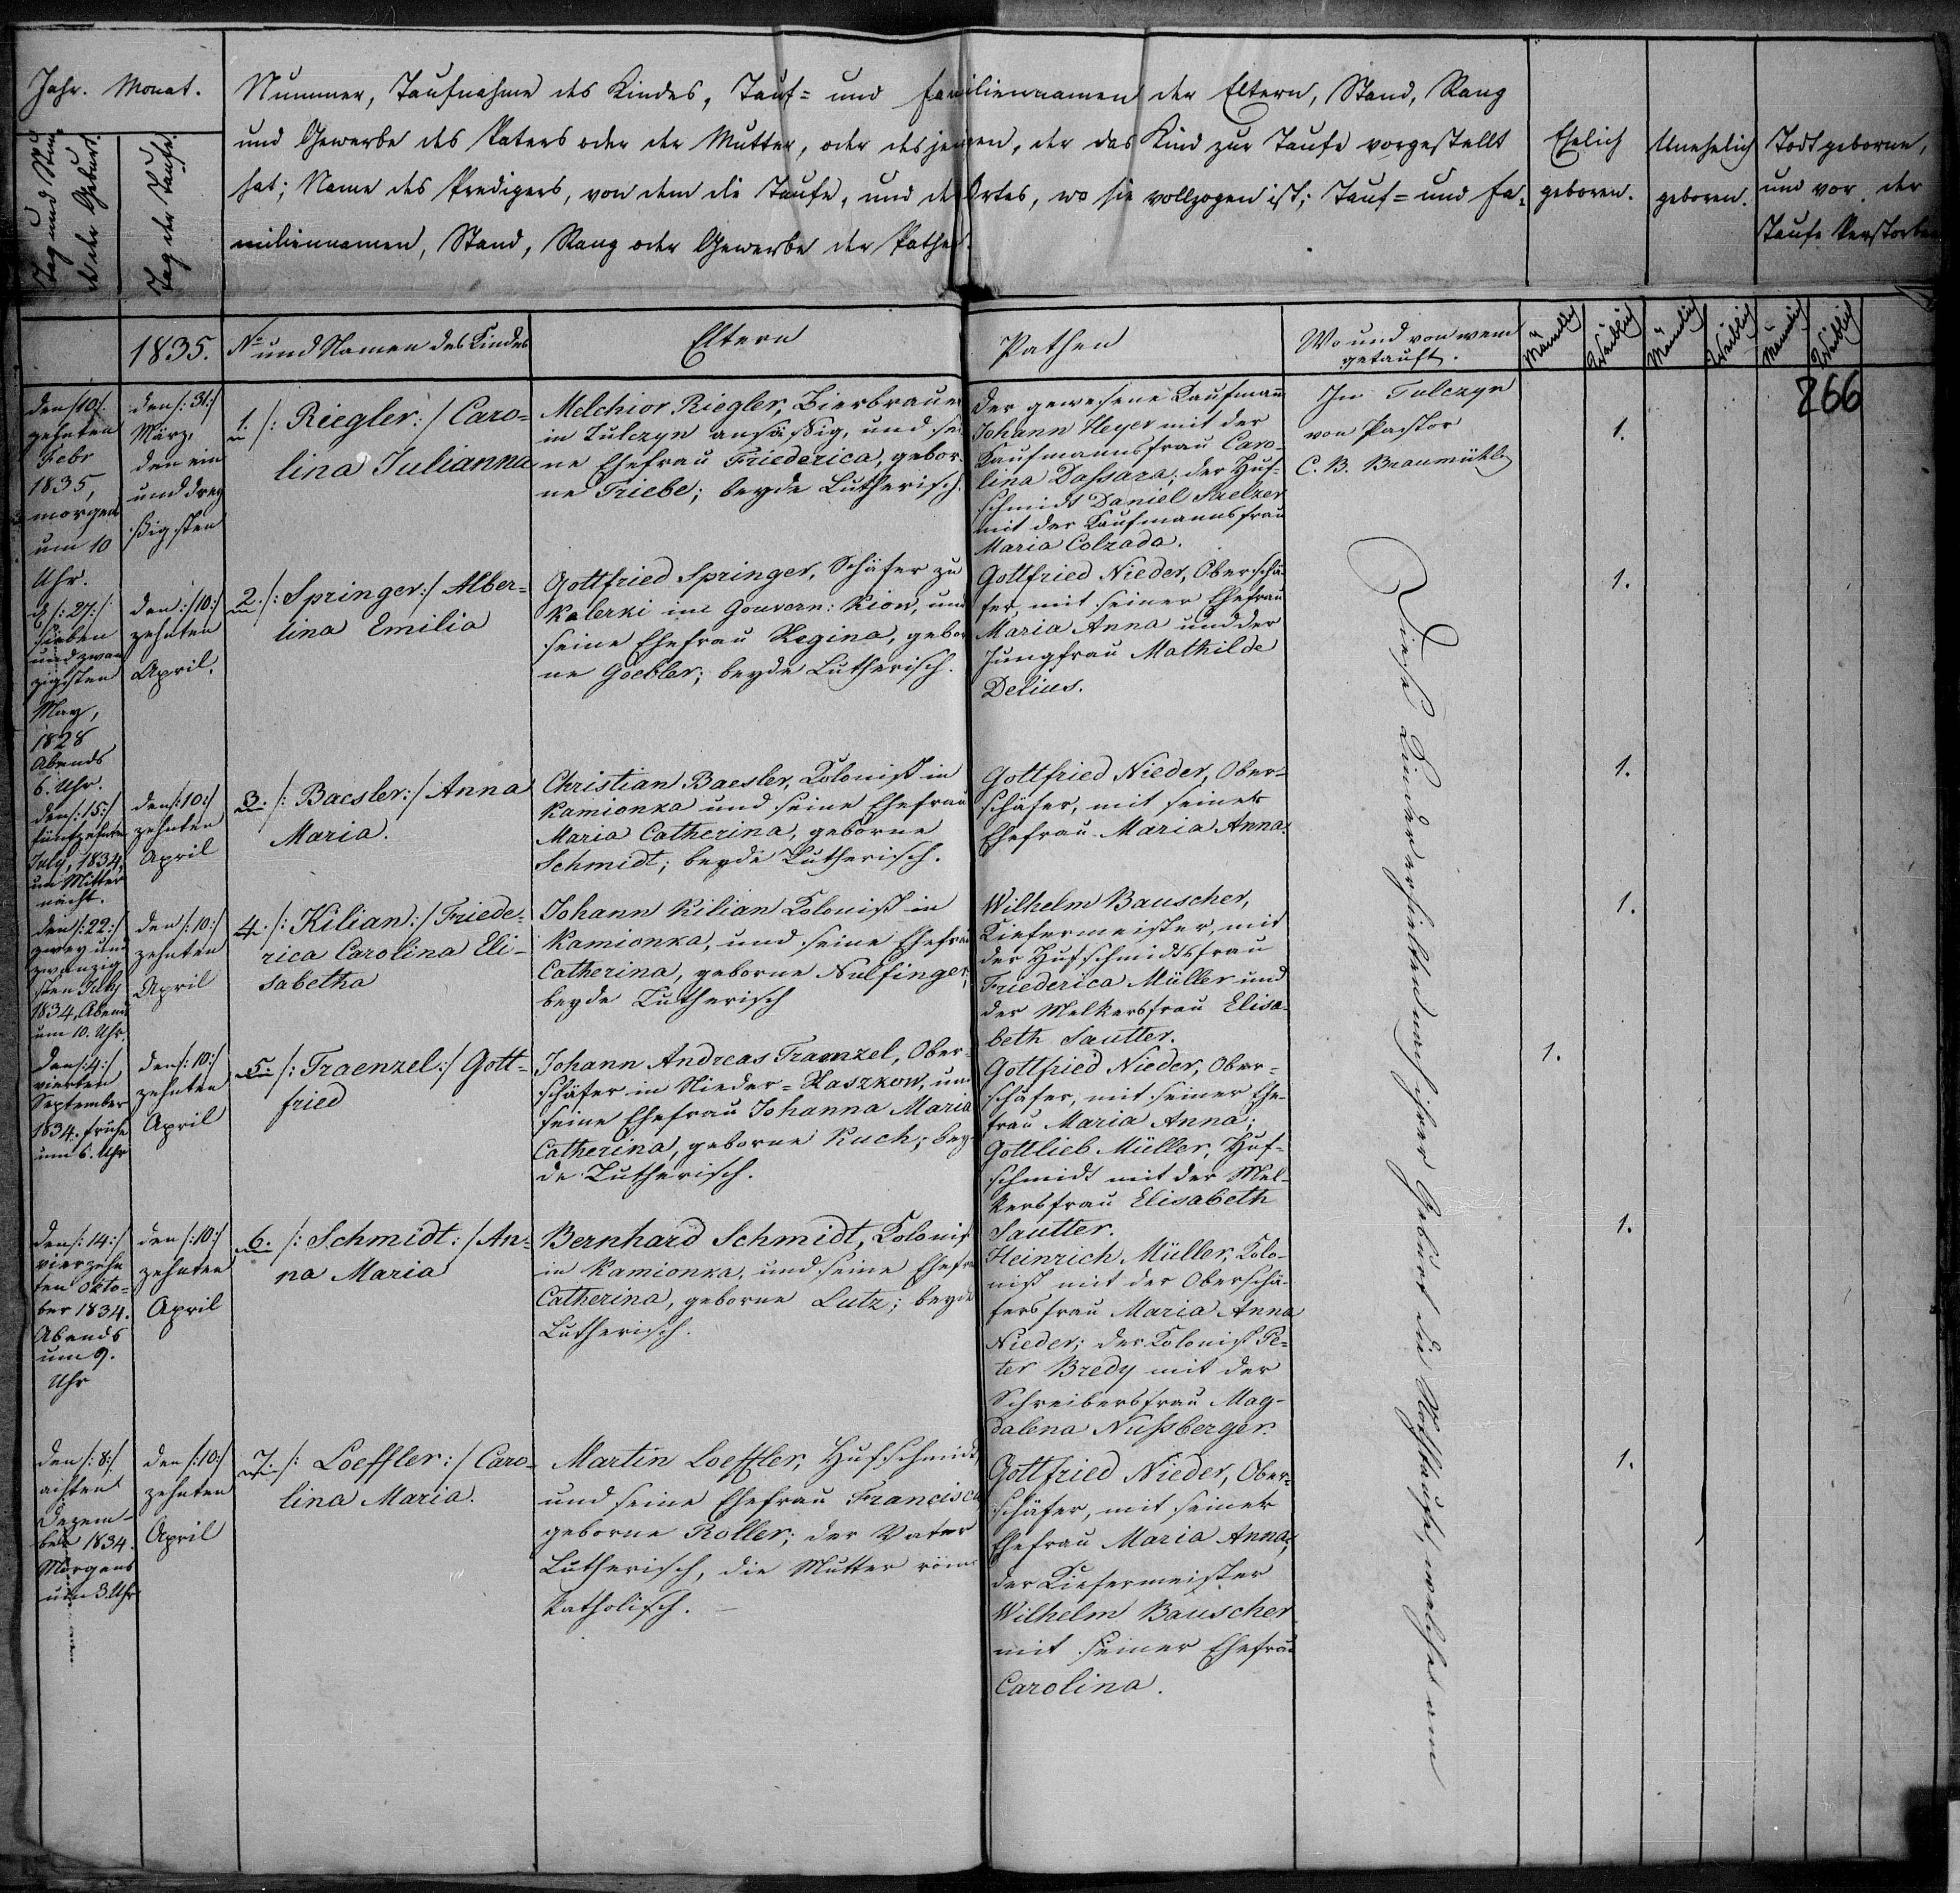 Jahr. Monat.
Tag und Stun-
de der Geburt.
Tag der Taufe.
Nummer, Taufnahme des Kindes, Tauf= und Familiennamen der Eltern, Stand, Rang
und Gewerbe des Vaters oder der Mutter, oder desjenigen, der das Kind zur Taufe vorgestellt
hat; Name des Predigers, von dem die Taufe, und des Ortes, wo sie vollzogen ist; Tauf= und Fa-
miliennamen, Stand, Rang oder Gewerbe der Pathen.
Ehelich
geboren.
Unehelich
geboren.
Todtgeborne,
und vor der
Taufe Verstorbene
1835.
No und Namen des Kindes
Eltern
Pathen
Wo und von wem
getauft.
Männlich
Weiblich
Männlich
Weiblich
Männlich
Weiblich
266
den /:10:/
zehnten
Febr
1835,
morgens
um 10
Uhr.
den /:31:/
März,
den ein
und drey
ßigsten
1. /: Riegler :/ Caro=
lina Julianna
Melchior Riegler, Bierbrauer
in Tulczyn ansäßig, und sei
ne Ehefrau Friederica, gebor-
ne Triebe; beyde Lutherisch.
Der gewesene Kaufmann
Johann Heyer mit der
Kaufmannsfrau Caro-
lina Dassara; der Huf=
schmidt Daniel Stelzer
mit der Kaufmannsfrau
Maria Colzada.
In Tulczyn
von Pastor
C. B. Braumühl
1.
d /:27:/
sieben
und zwan
zigsten
May,
1828
Abends
6. Uhr.
den /:10:/
zehnten
April.
2. /: Springer :/ Alber=
tina Emilia
Gottfried Springer, Schäfer zu
Kalerki im Gouvern: Kiow, und
seine Ehefrau Regina, gebor
ne Goebler; beyde Lutherisch.
Gottfried Nieder, Oberschä-
fer, mit seiner Ehefrau
Maria Anna und der
Jungfrau Mathilde
Delius.
1.
den /:15:/
fünfzehnten
July, 1834,
um Mitter
nacht.
den /:10:/
zehnten
April
3. /: Baesler :/ Anna
Maria.
Christian Baesler, Kolonist in
Kamionka und seine Ehefrau
Maria Catherina, geborne
Schmidt; beyde Lutherisch.
Gottfried Nieder, Ober=
schäfer, mit seiner
Ehefrau Maria Anna.
1.
den /:22:/
zwey und
zwanzig
sten July
1834, Abends
um 10. Uhr.
den /:10:/
zehnten
April
4. /: Kilian :/ Friede-
rica Carolina Eli-
sabetha
Johann Kilian Kolonist in
Kamionka, und seine Ehefrau
Catherina, geborne Nulfinger;
beyde Lutherisch
Wilhelm Bauscher,
Kiefermeister, mit
der Hufschmidtsfrau
Friederica Müller und
der Melkersfrau Elisa-
beth Sautter.
1.
den /:4:/
vierten
September
1834. frühe
um 6. Uhr
den /:10:/
zehnten
April
5. /: Traenzel :/ Gott=
fried
Johann Andreas Traenzel, Ober-
schäfer in Nieder=Zaszkow, und
seine Ehefrau Johanna Maria
Catherina, geborne Kuch; bey-
de Lutherisch.
Gottfried Nieder, Ober=
schäfer, mit seiner Ehe-
frau Maria Anna;
Gottlieb Müller, Huf=
schmidt mit der Mel-
kersfrau Elisabeth
Sautter.
1.
den /:14:/
vierzehn
ten Okto=
ber 1834.
Abends
um 9.
Uhr
den /:10:/
zehnten
April
6. /: Schmidt :/ An=
na Maria
Bernhard Schmidt, Kolonist
in Kamionka, und seine Ehefrau
Catherina, geborne Lutz; beyde
Lutherisch.
Heinrich Müller, Kolo-
nist mit der Oberschä-
fersfrau Maria Anna
Nieder; der Kolonist Pe=
ter Bredy mit der
Schreibersfrau Mag-
dalena Nußberger.
1.
den /:8:/
achten
Dezem-
ber 1834.
Morgens
um 3 Uhr
den /:10:/
zehnten
April
7. /: Loeffler :/ Caro-
lina Maria.
Martin Loeffler, Hufschmidt
und seine Ehefrau Francisca
geborne Roller; der Vater
Lutherisch, die Mutter röm
Katholisch.
Gottfried Nieder, Ober=
schäfer, mit seiner
Ehefrau Maria Anna;
der Kiefermeister
Wilhelm Bauscher
mit seiner Ehefrau
Carolina.
1.
Diese Kinder erhielten nach ihrer Geburt die Nothtaufe, welche am